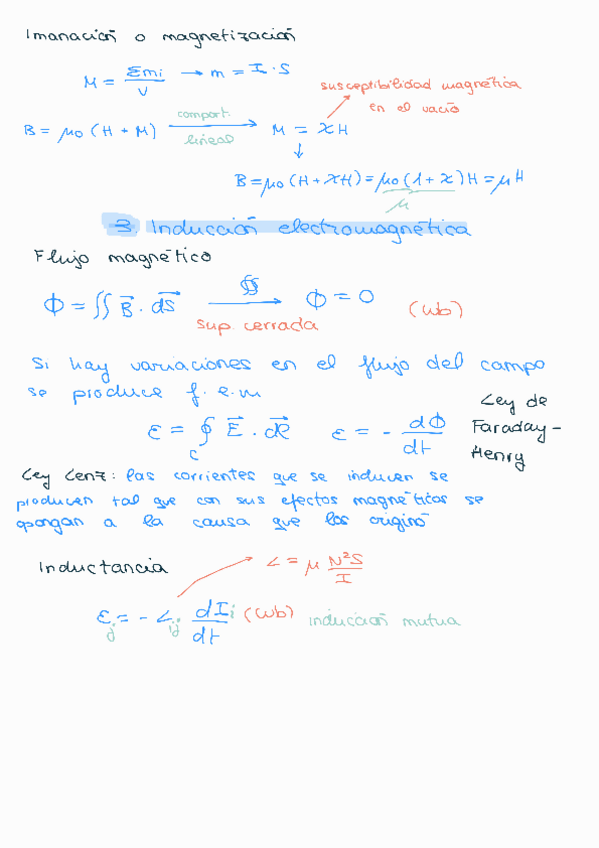 Imanación o magnetización
M = Σmi / V → m = I · S
susceptibilidad magnética
en el vacío
B = μ0 (H + M) comport. lineal → M = χH
↓
B = μ0 (H + χH) = μ0 (1 + χ) H = μH
μ
3 Inducción electromagnética
Flujo magnético
Φ = ∬ B⃗ · dS⃗ ∯ sup. cerrada → Φ = 0 (Wb)
Si hay variaciones en el flujo del campo
se produce f.e.m
ε = ∮c E⃗ · dl⃗ ε = - dΦ / dt
Ley de
Faraday-
Henry
Ley Lenz: las corrientes que se inducen se
producen tal que con sus efectos magnéticos se
opongan a la causa que los originó
Inductancia
L = μ N²S / I
εj = - Lij dIi / dt (Wb) inducción mutua